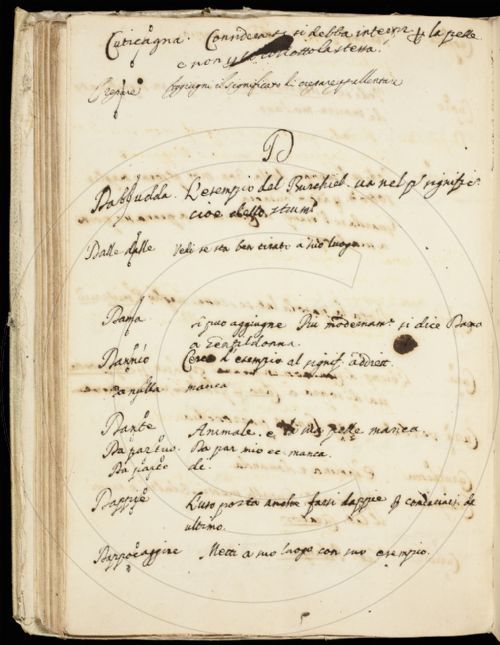 Cuticagna. Considerare si debba intender p la pelle
e non
Crepare Aggiugni il significato di crepare p allentare
D
Dabbudda. L'esempio del Burchiel. va nel p° signific°
cioè dello strum°
Dalle dalle Vedi se sta ben tirato a suo luogo.
Dama si può aggiugne Più modernam. si dice Dama
a gentildonna.
Dannio Cerca l'esempio al signif. addiett.
Da nulla manca
Dante Animale. e pelle manca.
Da par suo. Da par mio ec manca.
Da parte de
Dappiè L'uso porta anche farsi dappiè p
ultimo.
Dappocaggine Metti a suo luogo con suo esempio.